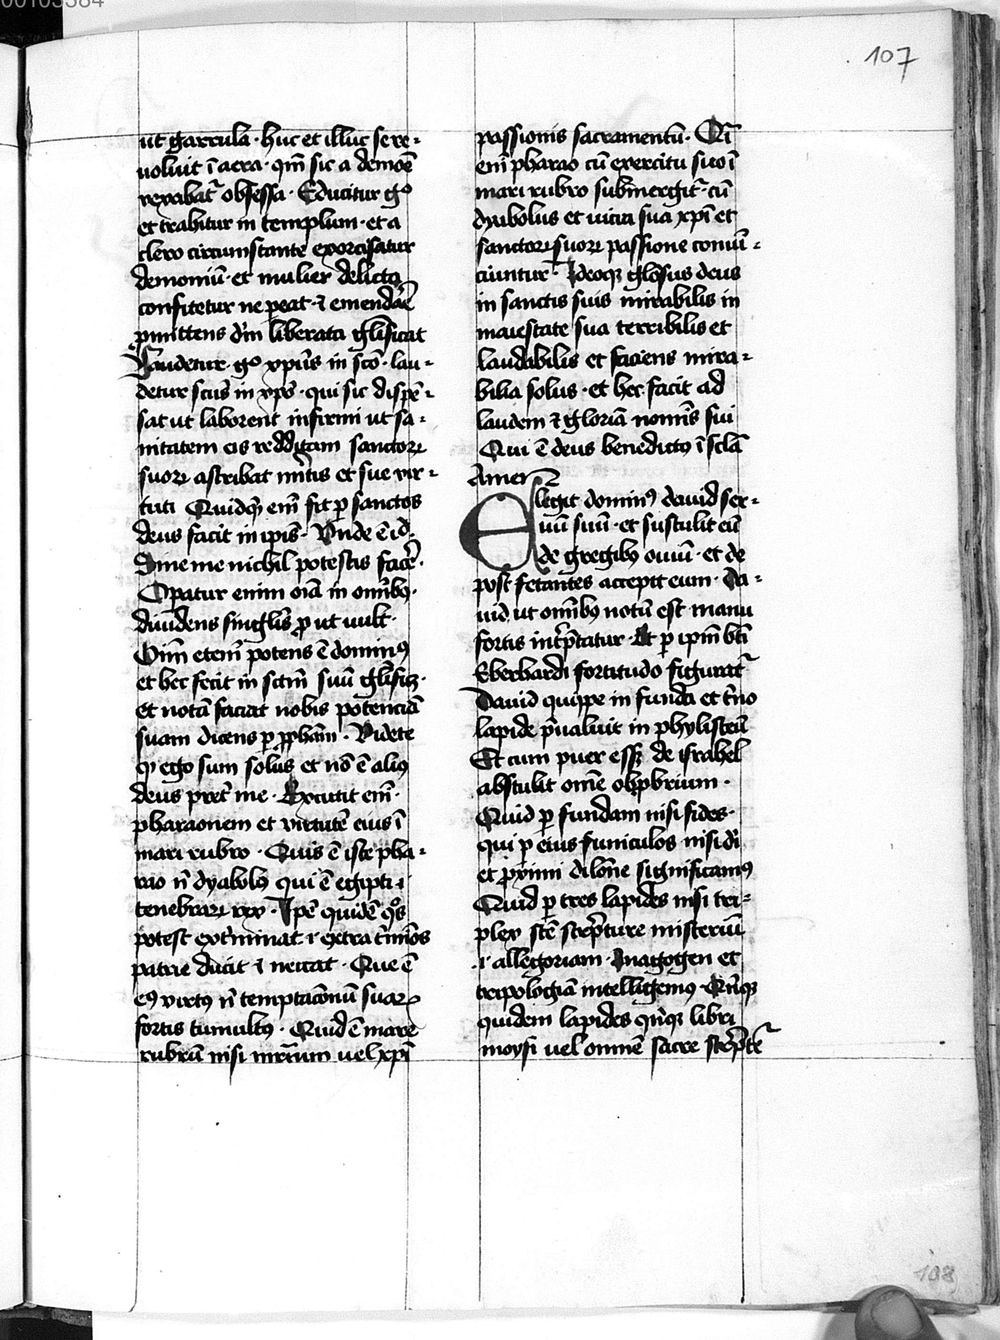 00103384
107
ut garrula · huc et illuc se re-
voluit ī aera · qm̄ sic a demoē
vexabat᷑ obsessa · Educitur gͦ
et trahitur in templum · et a
clero circumstante exorcisatur
demoniū · et mulier delicta
confitetur ne ꝑeat · ⁊ emendac̄ē
ꝓmittens dn̄m liberata glīficat
Laudetur gͦ xp̄us in scō · lau-
detur scūs in xpō · qui sic dispē-
sat ut laborent infirmi ut sa-
nitatem eis redditam sanctoꝝ
suoꝝ astribat mītis et sue vir-
tuti Quidqͥd em̄ fit ꝑ sanctos
deus facit in ip̄is · Unde ē id ·
Sine me nichil potestis facē ·
Opatur enim oīa in om̄ibꝫ ·
diuidens singlīs ꝓ ut vult ·
Oīm etem̄ potens ē dominꝰ
et hec fecit in scm̄ suū glīficꝫ ·
et notā faciat nobis potenciā
suam dicens ꝑ ꝓpham̄ · Videte
ꝙ ego sum solus et nō ē aliꝰ
deus pret̄ me · Excutit em̄ ·
pharaonem et virtutē eius ī
mari rubro · Quis ē iste pha-
rao n̄ dyabolꝰ qui ē egipti ·i·
tenebraꝝ rex · Ip̄e quidē qͦs
potest ext̄minat ·i· extra t̄minos
patrie ducit ⁊ necat · Que ē
eꝰ virtꝰ n̄ temptac̄onū suaꝝ
fortis tumultꝰ · Quid ē mare
rubrū nisi mr̄ium uel xp̄i
passionis sacramentū · Qn̄
em̄ pharao cū exercitu suo ī
mari rubro submergit᷑ · cū
dyabolus et uicia sua xp̄i et
sanctoꝝ suoꝝ passione conuī-
cuntur · Ideoqꝫ glōsus deus
in sanctis suis mirabilis in
maiestate sua terribilis et
laudabilis et faciens mira-
bilia solus · et hec facit ad
laudem ⁊ gloriā nomīs sui
Qui ē deus benedictꝰ ī sclā
Amen
Elegit dominꝰ dauid ser-
uū suū · et sustulit eū
de gregibꝫ ouiū · et de
post fetantes accepit eum · Da-
uid ut om̄ibꝫ notū est manu
fortis int̄p̄tatur · Et ꝑ ip̄m bt̄i
Eberhardi fortitudo figurat᷑
Dauid quippe in funda et t̄no
lapide p̄ualuit in phylisteū
Et cum puer essꝫ de israhel
abstulit om̄e obꝓbrium ·
Quid ꝑ fundam nisi fides ·
qui ꝑ eius funiculos nisi dī
et ꝓximi dilōne significamꝰ
Quid ꝑ tres lapides nisi tri-
plex stē sc̄pture misteriū
·i· allegoriam · Anagogen et
tropologiā intelligemꝰ · Qn̄qꝫ
quidem lapides qn̄qꝫ libri
moysi uel omnē sacre sc̄pte᷑
108